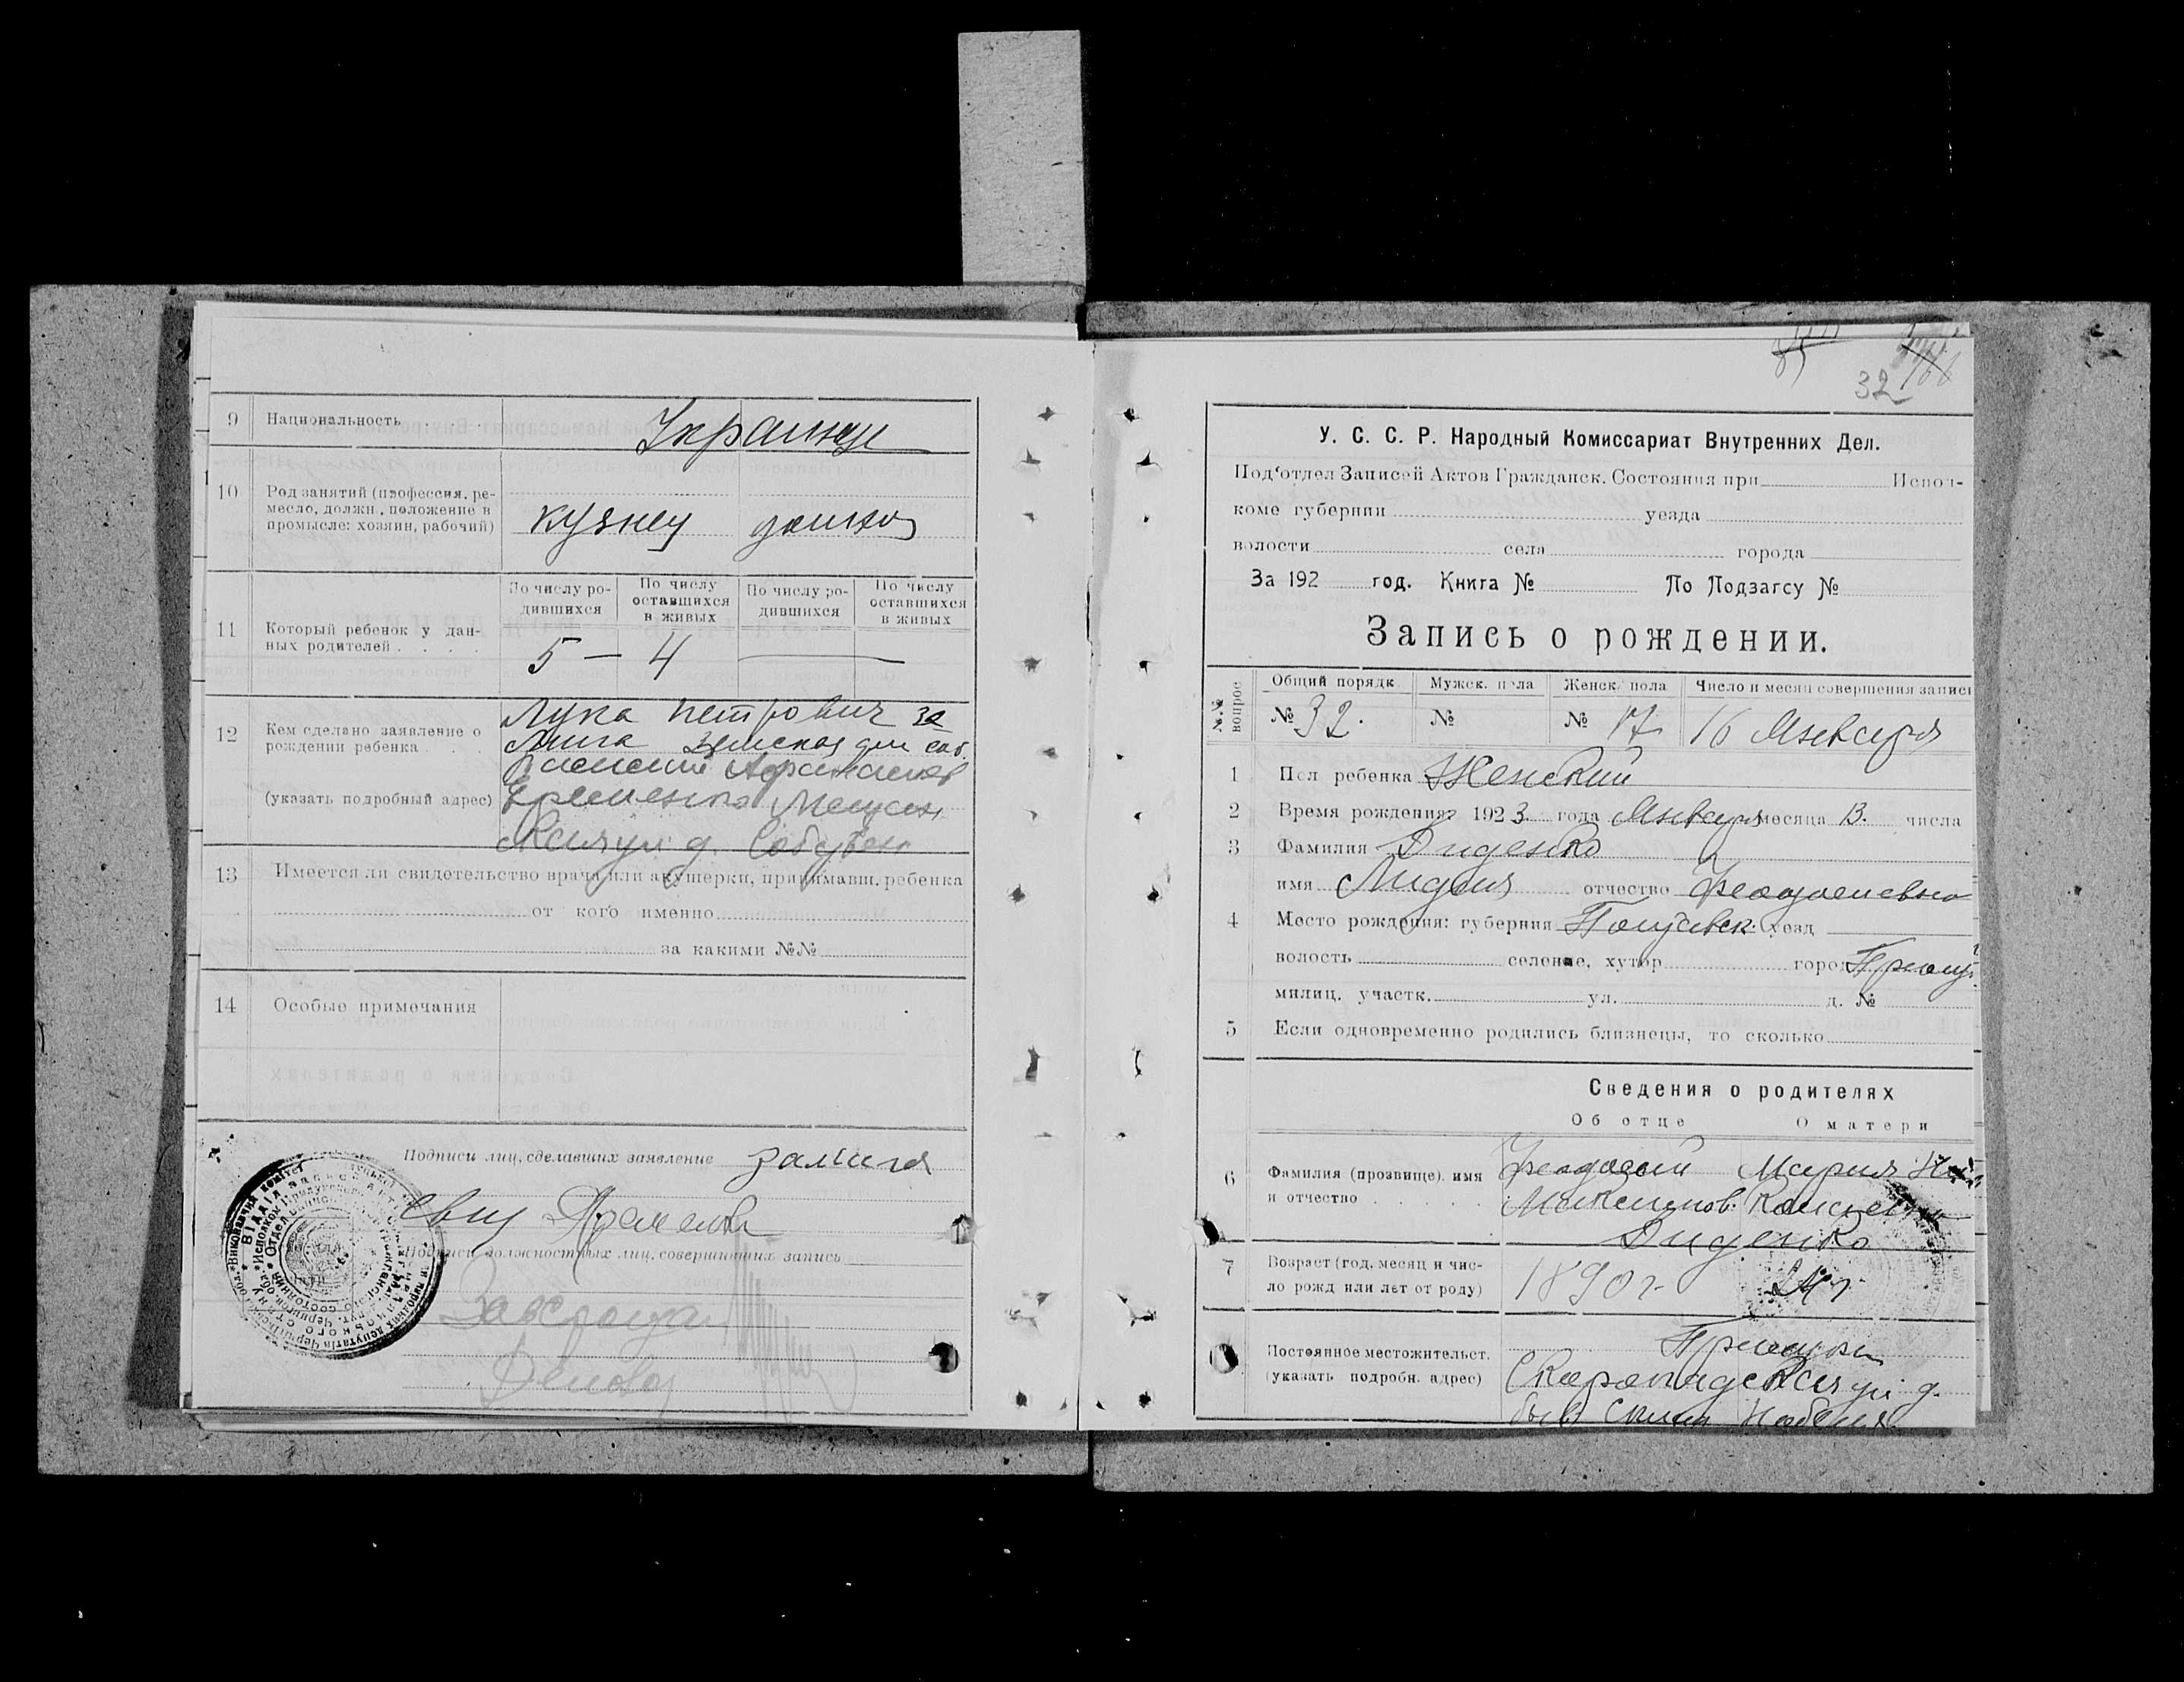 9 Национальность
Украинцы
10 Род занятий (профессия, ре-
месло, должн., положение в
промысле: хозяин, рабочий)
кузнец домхоз
11 Который ребенок у дан-
ных родителей
По числу ро-
дившихся
По числу
оставшихся
в живых
По числу ро-
дившихся
По числу
оставшихся
в живых
5 — 4
12 Кем сделано заявление о
рождении ребенка
(указать подробный адрес)
Лука Петрович За
Земская дом соб.
13 Имеется ли свидетельство врача или акушерки, принимавш. ребенка
от кого именно
за какими №№
14 Особые примечания
Подписи лиц, сделавших заявление
Подписи должностных лиц, совершивших запись
32
У. С. С. Р. Народный Комиссариат Внутренних Дел.
Под'отдел Записей Актов Гражданск. Состояния при Испол-
коме губернии уезда
волости села города
За 192 год. Книга № По Подзагсу №
Запись о рождении.
№№ вопрос
Общий порядк. Мужск. пола Женск. пола Число и месяц совершения записи
№ 32. № № 17 16 Января
1 Пол ребенка Женский
2 Время рождения: 1923 года Января месяца 13. числа
3 Фамилия Диденко
имя Лидия отчество Феодосиевна
4 Место рождения: губерния Полтавск. уезд
волость селение, хутор город Прилуки
милиц. участк. ул. д. №
5 Если одновременно родились близнецы, то сколько
Сведения о родителях
Об отце О матери
6 Фамилия (прозвище), имя
и отчество
Феодосий Мария
Диденко
7 Возраст (год, месяц и чис-
ло рожд. или лет от роду)
1890 г.
Постоянное местожительст.
(указать подробн. адрес)
Прилуки
Скоропадская ул. д.